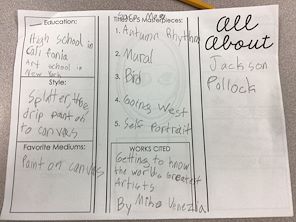 Education:
High school in
California
Art school in
New York
Style:
Splatter, the
drip paint on
to canvas
Favorite Mediums:
Paint on canvas
Masterpieces:
1. Autumn Rhythm
2. Mural
3. Bird
4. Going West
5. Self Portrait
WORKS CITED
Getting to know
the world's Greatest
Artists
By Mike Venezia
All
About
Jackson
Pollock